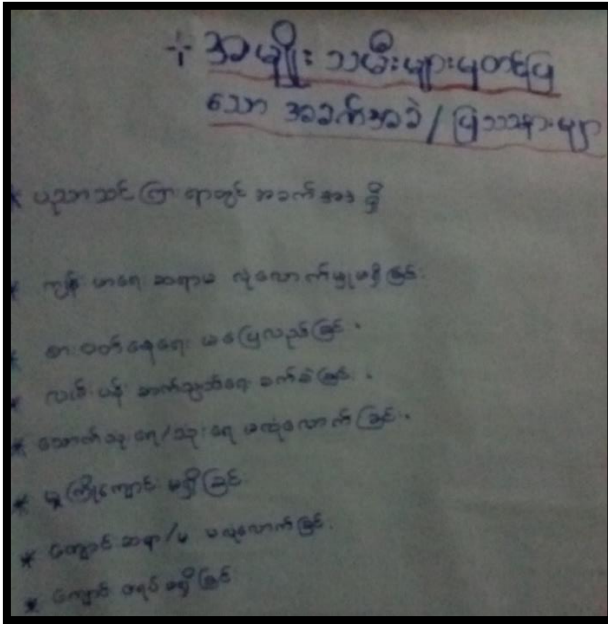 ÷ အမျိုး သမီးများမှတင်ပြ
သော အခက်အခဲ / ပြဿနာများ
* ပညာသင် ကြား ရာတွင် အခက်အခဲ ရှိ
* ကျန်းမာရေး ဆရာမ လုံလောက်မှုမရှိခြင်း
* စား ဝတ်နေရေး မပြေလည်ခြင်း
* လမ်း ပန်း ဆက်သွယ်ရေး ခက်ခဲခြင်း
* သောက်သုံးရေ/သုံးရေ မလုံလောက်ခြင်း
* မူကြိုကျောင်း မရှိခြင်း
* ကျောင်းဆရာ/မ မလုံလောက်ခြင်း
* ကျောင်း မရှိခြင်း